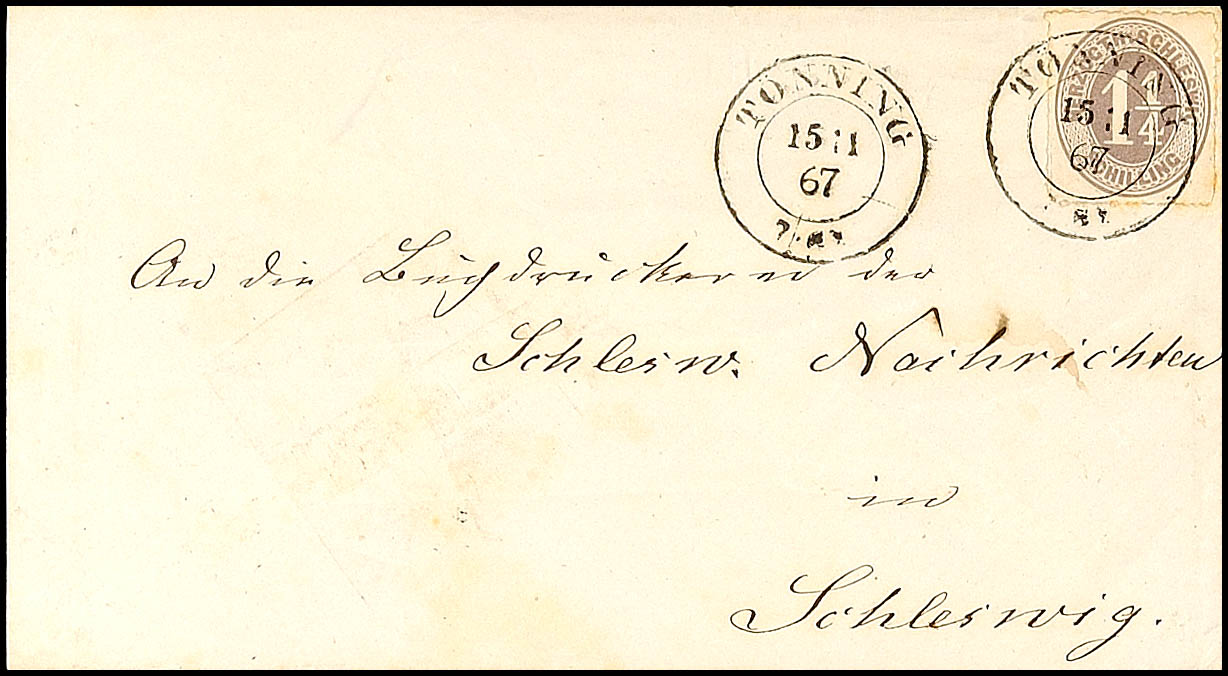 TÖNNING
15 1
67
TÖNNING
15 1
67
HERZOGTH. SCHLESWIG
1 1/4
SCHILLING
An die Buchdruckerei der
Schlesw. Nachrichten
in
Schleswig.